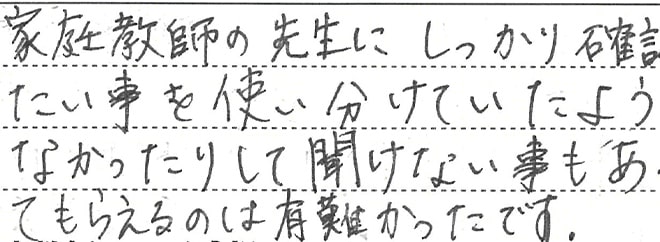 家庭教師の先生にしっかり確認
たい事を使い分けていたよう
なかったりして聞けない事もあ
てもらえるのは有難かったです。